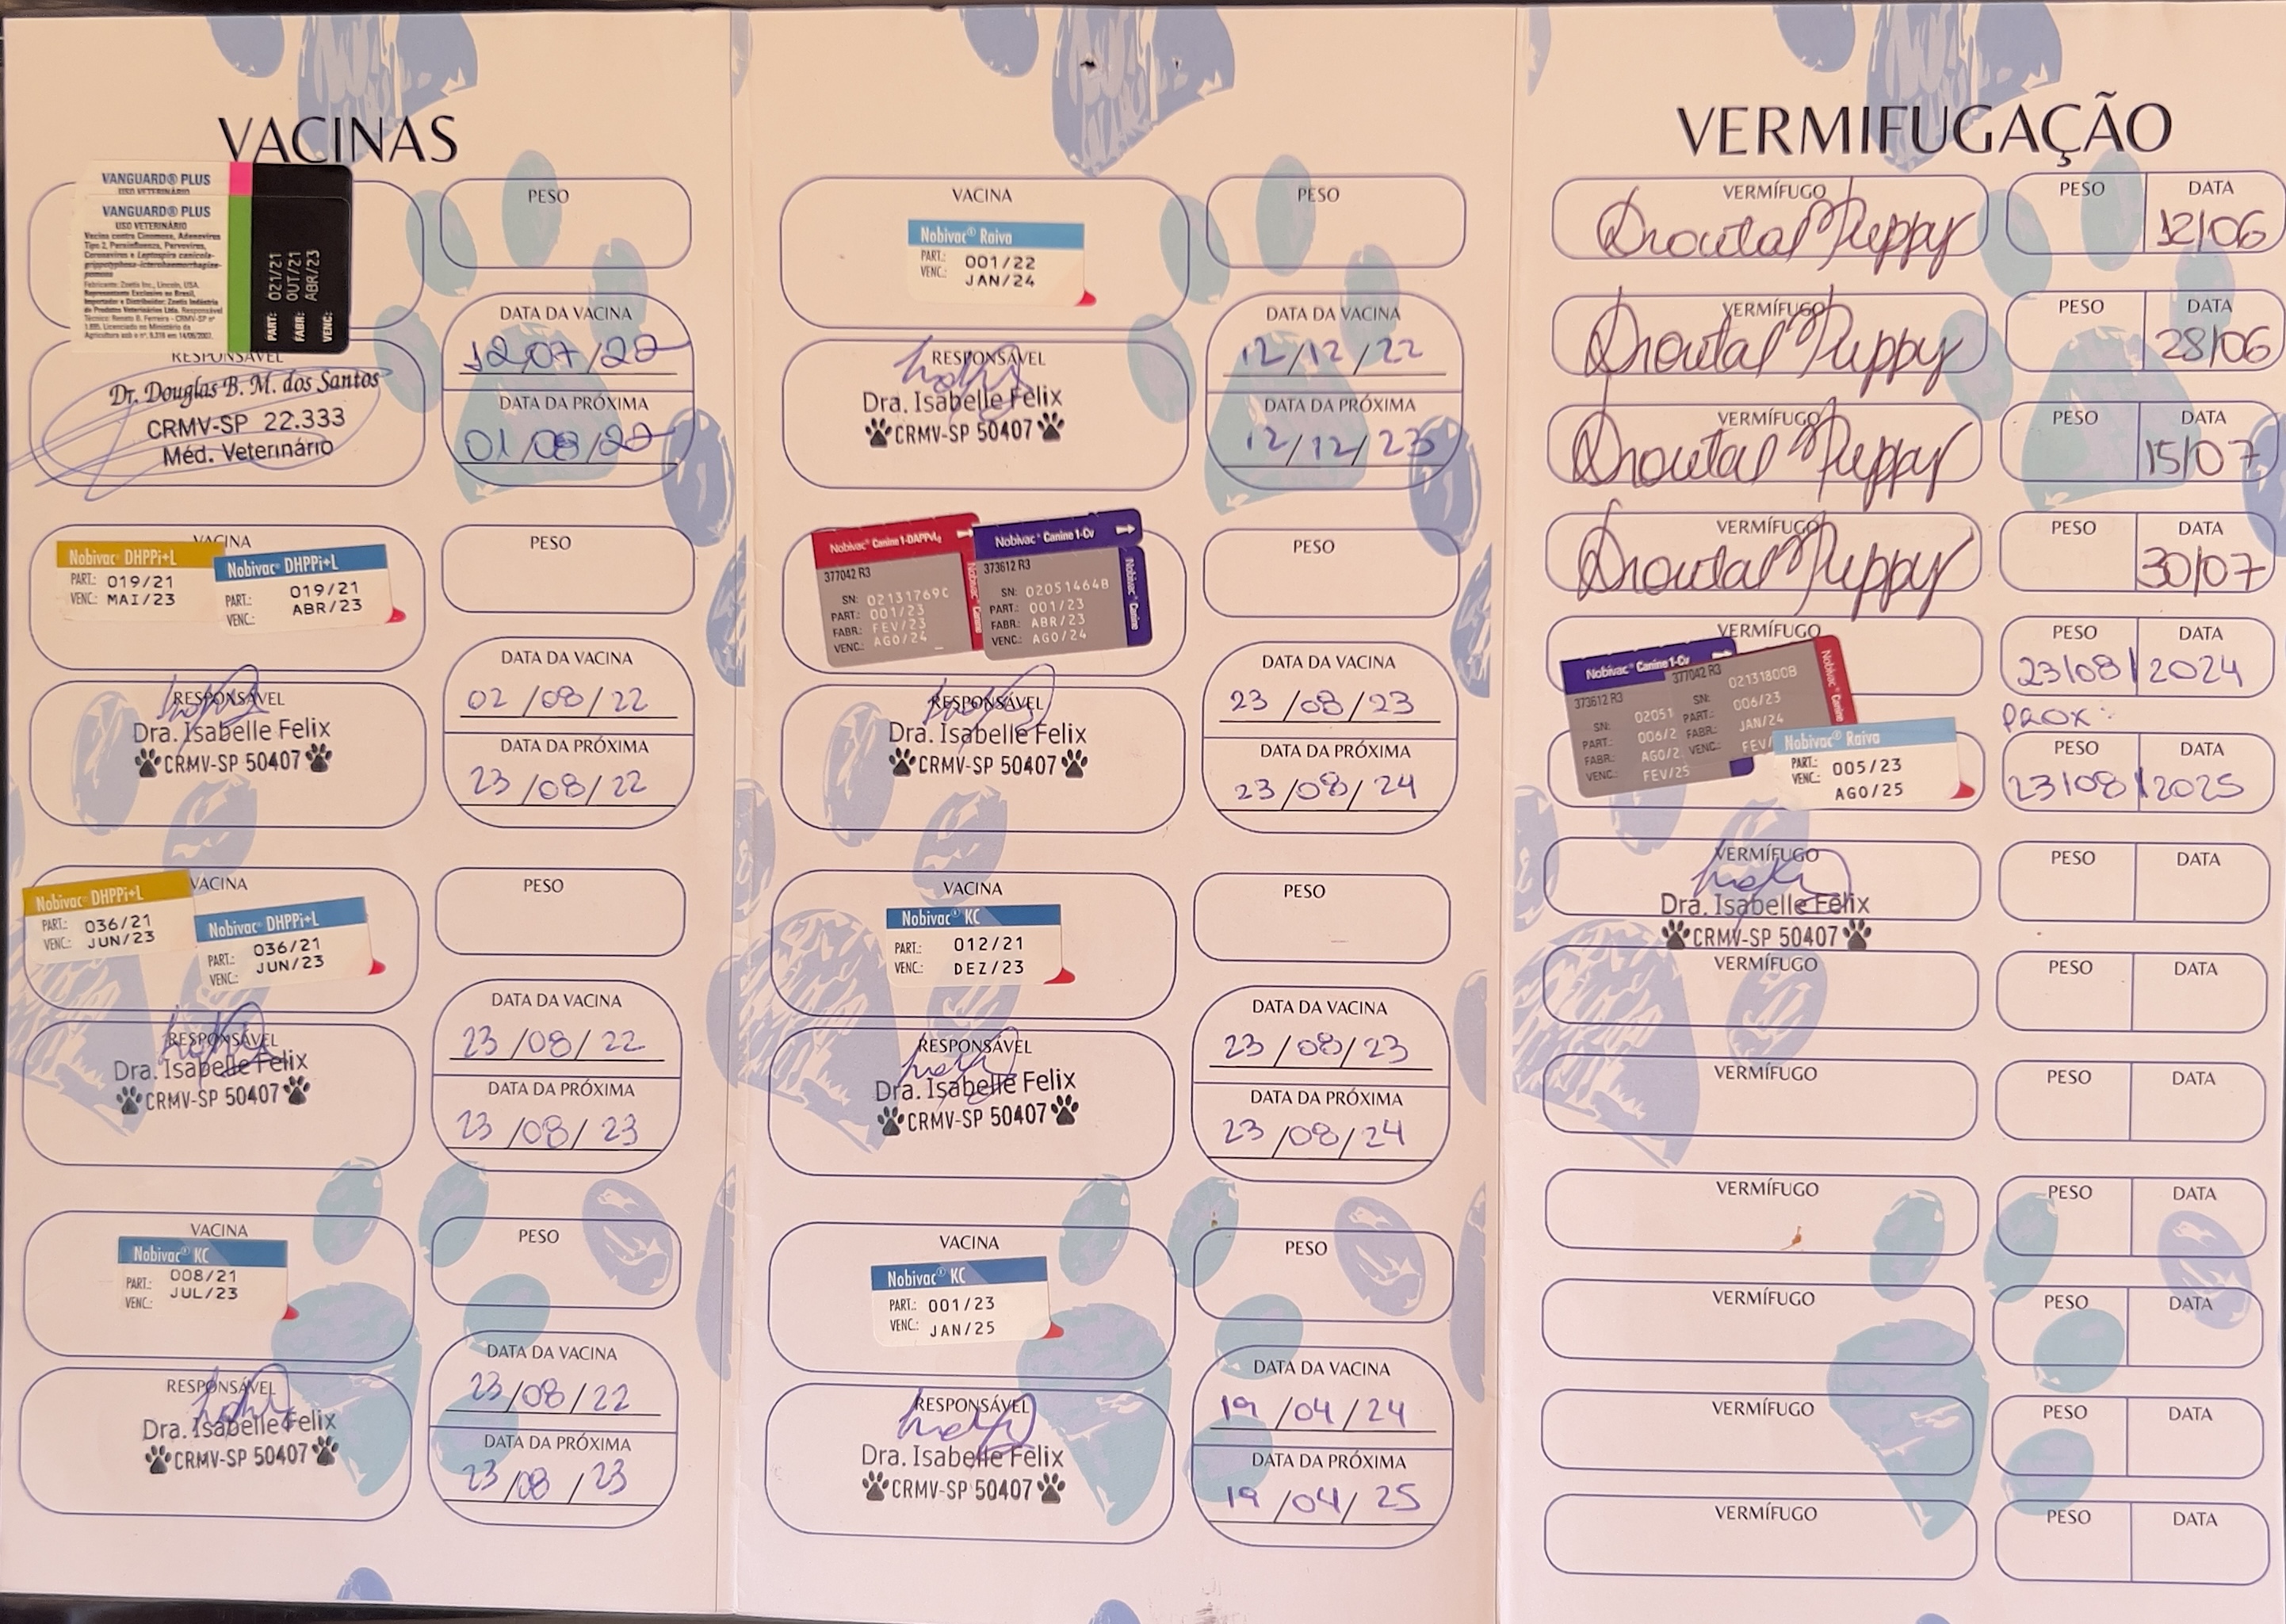 VACINAS
VANGUARD® PLUS
USO VETERINÁRIO
VANGUARD® PLUS
USO VETERINÁRIO
Vacina contra Cinomose, Adenovírus
Tipo 2, Parainfluenza, Parvovírus,
Coronavírus e Leptospira canicola-
grippotyphosa-icterohaemorrhagiae-
pomona
Fabricante: Zoetis Inc., Lincoln, USA.
Representante Exclusivo no Brasil,
Importador e Distribuidor: Zoetis Indústria
de Produtos Veterinários Ltda. Responsável
PART: 021/21
FABR: OUT/21
VENC: ABR/23
PESO
DATA DA VACINA
12/07/22
DATA DA PRÓXIMA
01/08/22
RESPONSÁVEL
Dr. Douglas B. M. dos Santos
CRMV-SP 22.333
Méd. Veterinário
VACINA
Nobivac® DHPPi+L
PART.: 019/21
VENC.: MAI/23
Nobivac® DHPPi+L
PART.: 019/21
VENC.: ABR/23
PESO
DATA DA VACINA
02/08/22
DATA DA PRÓXIMA
23/08/22
RESPONSÁVEL
Dra. Isabelle Felix
CRMV-SP 50407
VACINA
Nobivac® DHPPi+L
PART.: 036/21
VENC.: JUN/23
Nobivac® DHPPi+L
PART.: 036/21
VENC.: JUN/23
PESO
DATA DA VACINA
23/08/22
DATA DA PRÓXIMA
23/08/23
RESPONSÁVEL
Dra. Isabelle Felix
CRMV-SP 50407
VACINA
Nobivac® KC
PART.: 008/21
VENC.: JUL/23
PESO
DATA DA VACINA
23/08/22
DATA DA PRÓXIMA
23/08/23
RESPONSÁVEL
Dra. Isabelle Felix
CRMV-SP 50407
VACINA
Nobivac® Raiva
PART.: 001/22
VENC.: JAN/24
PESO
DATA DA VACINA
12/12/22
DATA DA PRÓXIMA
12/12/23
RESPONSÁVEL
Dra. Isabelle Felix
CRMV-SP 50407
Nobivac® Canine 1-DAPPvL2
377042 R3
SN: 02131769C
PART.: 001/23
FABR.: FEV/23
VENC.: AGO/24
Nobivac® Canine
Nobivac® Canine 1-Cv
373612 R3
SN: 02051464B
PART.: 001/23
FABR.: ABR/23
VENC.: AGO/24
Nobivac® Canine
PESO
DATA DA VACINA
23/08/23
DATA DA PRÓXIMA
23/08/24
RESPONSÁVEL
Dra. Isabelle Felix
CRMV-SP 50407
VACINA
Nobivac® KC
PART.: 012/21
VENC.: DEZ/23
PESO
DATA DA VACINA
23/08/23
DATA DA PRÓXIMA
23/08/24
RESPONSÁVEL
Dra. Isabelle Felix
CRMV-SP 50407
VACINA
Nobivac® KC
PART.: 001/23
VENC.: JAN/25
PESO
DATA DA VACINA
19/04/24
DATA DA PRÓXIMA
19/04/25
RESPONSÁVEL
Dra. Isabelle Felix
CRMV-SP 50407
VERMIFUGAÇÃO
VERMÍFUGO PESO DATA
Drontal Puppy 12/06
VERMÍFUGO PESO DATA
Drontal Puppy 28/06
VERMÍFUGO PESO DATA
Drontal Puppy 15/07
VERMÍFUGO PESO DATA
Drontal Puppy 30/07
VERMÍFUGO PESO DATA
23/08/2024
PROX:
PESO DATA
23/08/2025
Nobivac® Canine 1-Cv
373612 R3
SN: 02051
PART.: 006/2
FABR.: AGO/2
VENC.: FEV/25
377042 R3
SN: 02131800B
PART.: 006/23
FABR.: JAN/24
VENC.: FEV/
Nobivac® Canine
Nobivac® Raiva
PART.: 005/23
VENC.: AGO/25
VERMÍFUGO PESO DATA
Dra. Isabelle Felix
CRMV-SP 50407
VERMÍFUGO PESO DATA
VERMÍFUGO PESO DATA
VERMÍFUGO PESO DATA
VERMÍFUGO PESO DATA
VERMÍFUGO PESO DATA
VERMÍFUGO PESO DATA